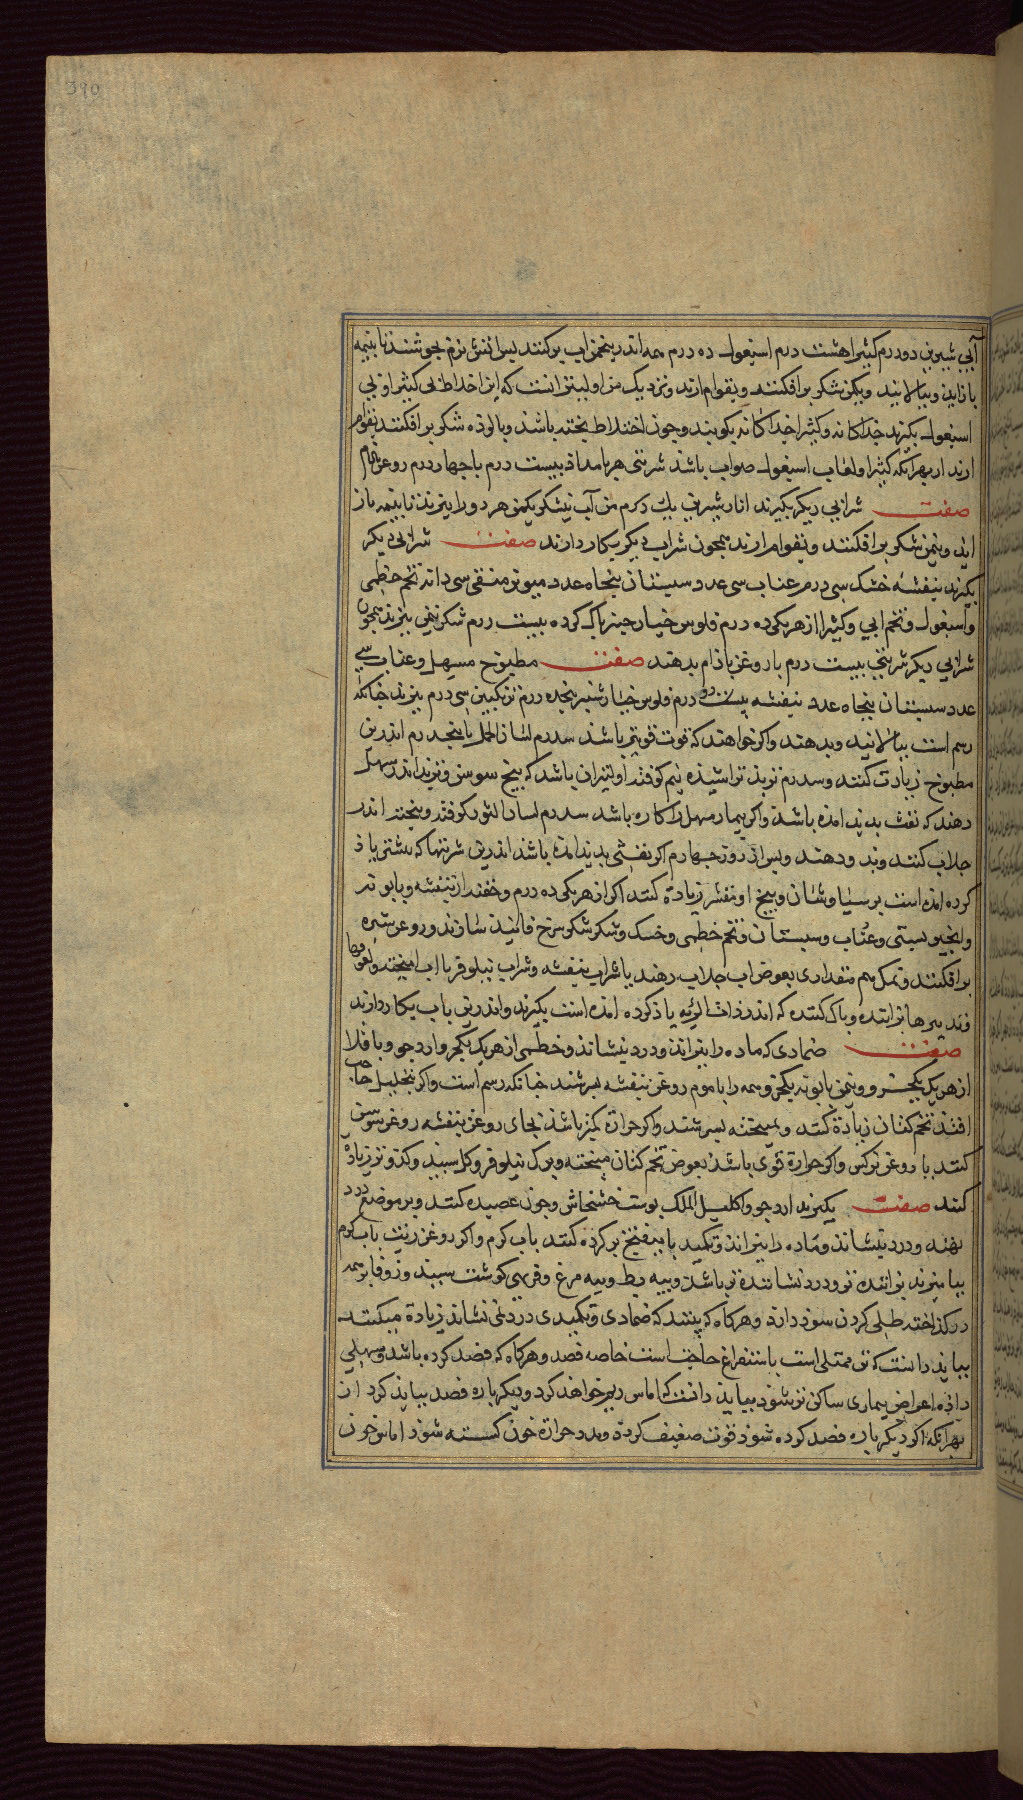 390
آبی شیرین دو درم کثیرا هشت درم اسبغول ده درم همه اندر پنجمن اب بر کنند پس اتش نرم بجوشند تا بنیمه
باز اید و بپالایند و یکمن شکر بر افکنند و بقوام ارند و نزدیک من اولیتر انست که این اخلاط بی کثیرا و بی
اسبغول بپزند جداکانه و کثیرا جداکانه بکوبند و جون اخلاط بخته باشد و بالوده شکر بر افکنند بقوام
ارند از بهر انکه کثیرا و لعاب اسبغول صواب باشد شربتی هر بامداد بیست درم با جهار درم روغن بادام
صفت شرابی دیکر بکیرند انار شیرین یک درم من آب نیشکر یکمن هر دو را بپزند تا بنیمه باز
اید و نیمن شکر بر افکنند و بقوام ارند همجون شراب دیکر بکار دارند صفت شرابی دیکر
بکیرند بنفشه خشک سی درم عناب سی عدد سبستان پنجاه عدد میویز منقی سی دانه تخم خطمی
و اسبغول و تخم ابی و کثیرا از هر یکی ده درم فلوس خیار جنبر پاک کرده بیست درم شکر بپزند همجون
شرابی دیکر شربتی بیست درم با روغن بادام بدهند صفت مطبوخ مسهل و عناب سی
عدد سبستان پنجاه عدد بنفشه بیست و دو درم فلوس خیارشنبر پنجده درم ترنکبین سی درم بپزند جنانکه
رسم است بپالایند و بدهند و اکر خواهند که قوت قویتر باشد سدرم لسان الحمل یا پنجدرم اندرین
مطبوخ زیادت کنند و سدرم تربد تراشیده نیم کوفته اولیتر ان باشد که بیخ سوسن و تربد اندر مسهل
دهند که نفث بدید امده باشد و اکر بیمار مسهل را کاره باشد سدرم لسان الثور کوفته و پخته اندر
جلاب کنند و بدو دهند و بس از روز جهارم اکر نفثی بدید امده باشد اندرین شربتها که بیشتر یاد
کرده امده است برسیاوشان و بیخ او بنفشه زیادة کنند اکر از هر یکی ده درم و خفته از بنفشه و بابونه
و انجیر بستی و عناب و سبستان و تخم خطمی و خسک و شکر شکر سرخ فانید سازند و روغن شیره
بر افکنند و نمک هم مقداری بعوض اب جلاب دهند یا شراب بنفشه و شراب نیلوفر با اب امیخته و لعوقها
و تدبیرها براننده و پاک کننده که اندر ذات الریه یاد کرده امده است بکیرند و اندرین باب بکار دارند
صفت ضمادی که ماده را بپزاند و درد بنشاند و خطمی از هر یک یکجزو ارد جو و باقلا
از هر یک یکجزو و نیم بابونه یکجزو همه را با موم روغن بنفشه بسرشند جنانکه رسم است و اکر بتحلیل حاجت
افتد تخم کتان زیادة کنند و بمیبخته بسرشند و اکر حرارة کمتر باشد بجای روغن بنفشه روغن سوسن
کنند یا روغن نرکس و اکر حرارة قوی باشد بعوض تخم کتان میبخته و برک نیلوفر و کل سپید و کدو تر زیادة
کنند صفت بکیرند ارد جو و اکلیل الملک پوست خشخاش و جون عصیده کنند و بر موضع درد
نهند و درد بنشاند و ماده را بپزاند و تکمید با میفختج بر کرده کنند باب کرم و اکر روغن زیت باب کرم
بیامیزند پزاننده تر و درد نشاننده تر باشد و پیه بط و پیه مرغ و فربهی کوشت سپید و زوفا تر همه
در کداخته طلی کردن سود دارد و هرکاه که بینند که ضمادی و تکمیدی درد نمی نشاند زیادة میکند
بباید دانست که تن ممتلی است باستفراغ حاجت است خاصه فصد و هرکاه که فصد کرده باشد و مسهلی
داده اعراض بیماری ساکن تر نشود بباید دانست که اماس ریم خواهد کرد و دیکر باره فصد نباید کرد از
بهر انکه اکر دیکر باره فصد کرده شود قوت ضعیف کردد و مدد حرارة خون کسسته شود اماس خون